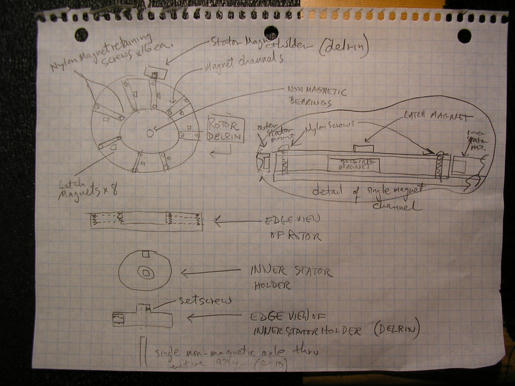 Nylon Magnet retaining
screws x 16 ea.
Stator Magnet Holder (delrin)
Magnet channels
NON MAGNETIC
BEARINGS
ROTOR
DELRIN
Latch
Magnets x 8
Nylon Screws
LATCH MAGNET
MAGNET
detail of single magnet
channel
EDGE VIEW
OF ROTOR
INNER STATOR
HOLDER
setscrew
EDGE VIEW OF
INNER STATOR HOLDER (DELRIN)
single non-magnetic axle thru